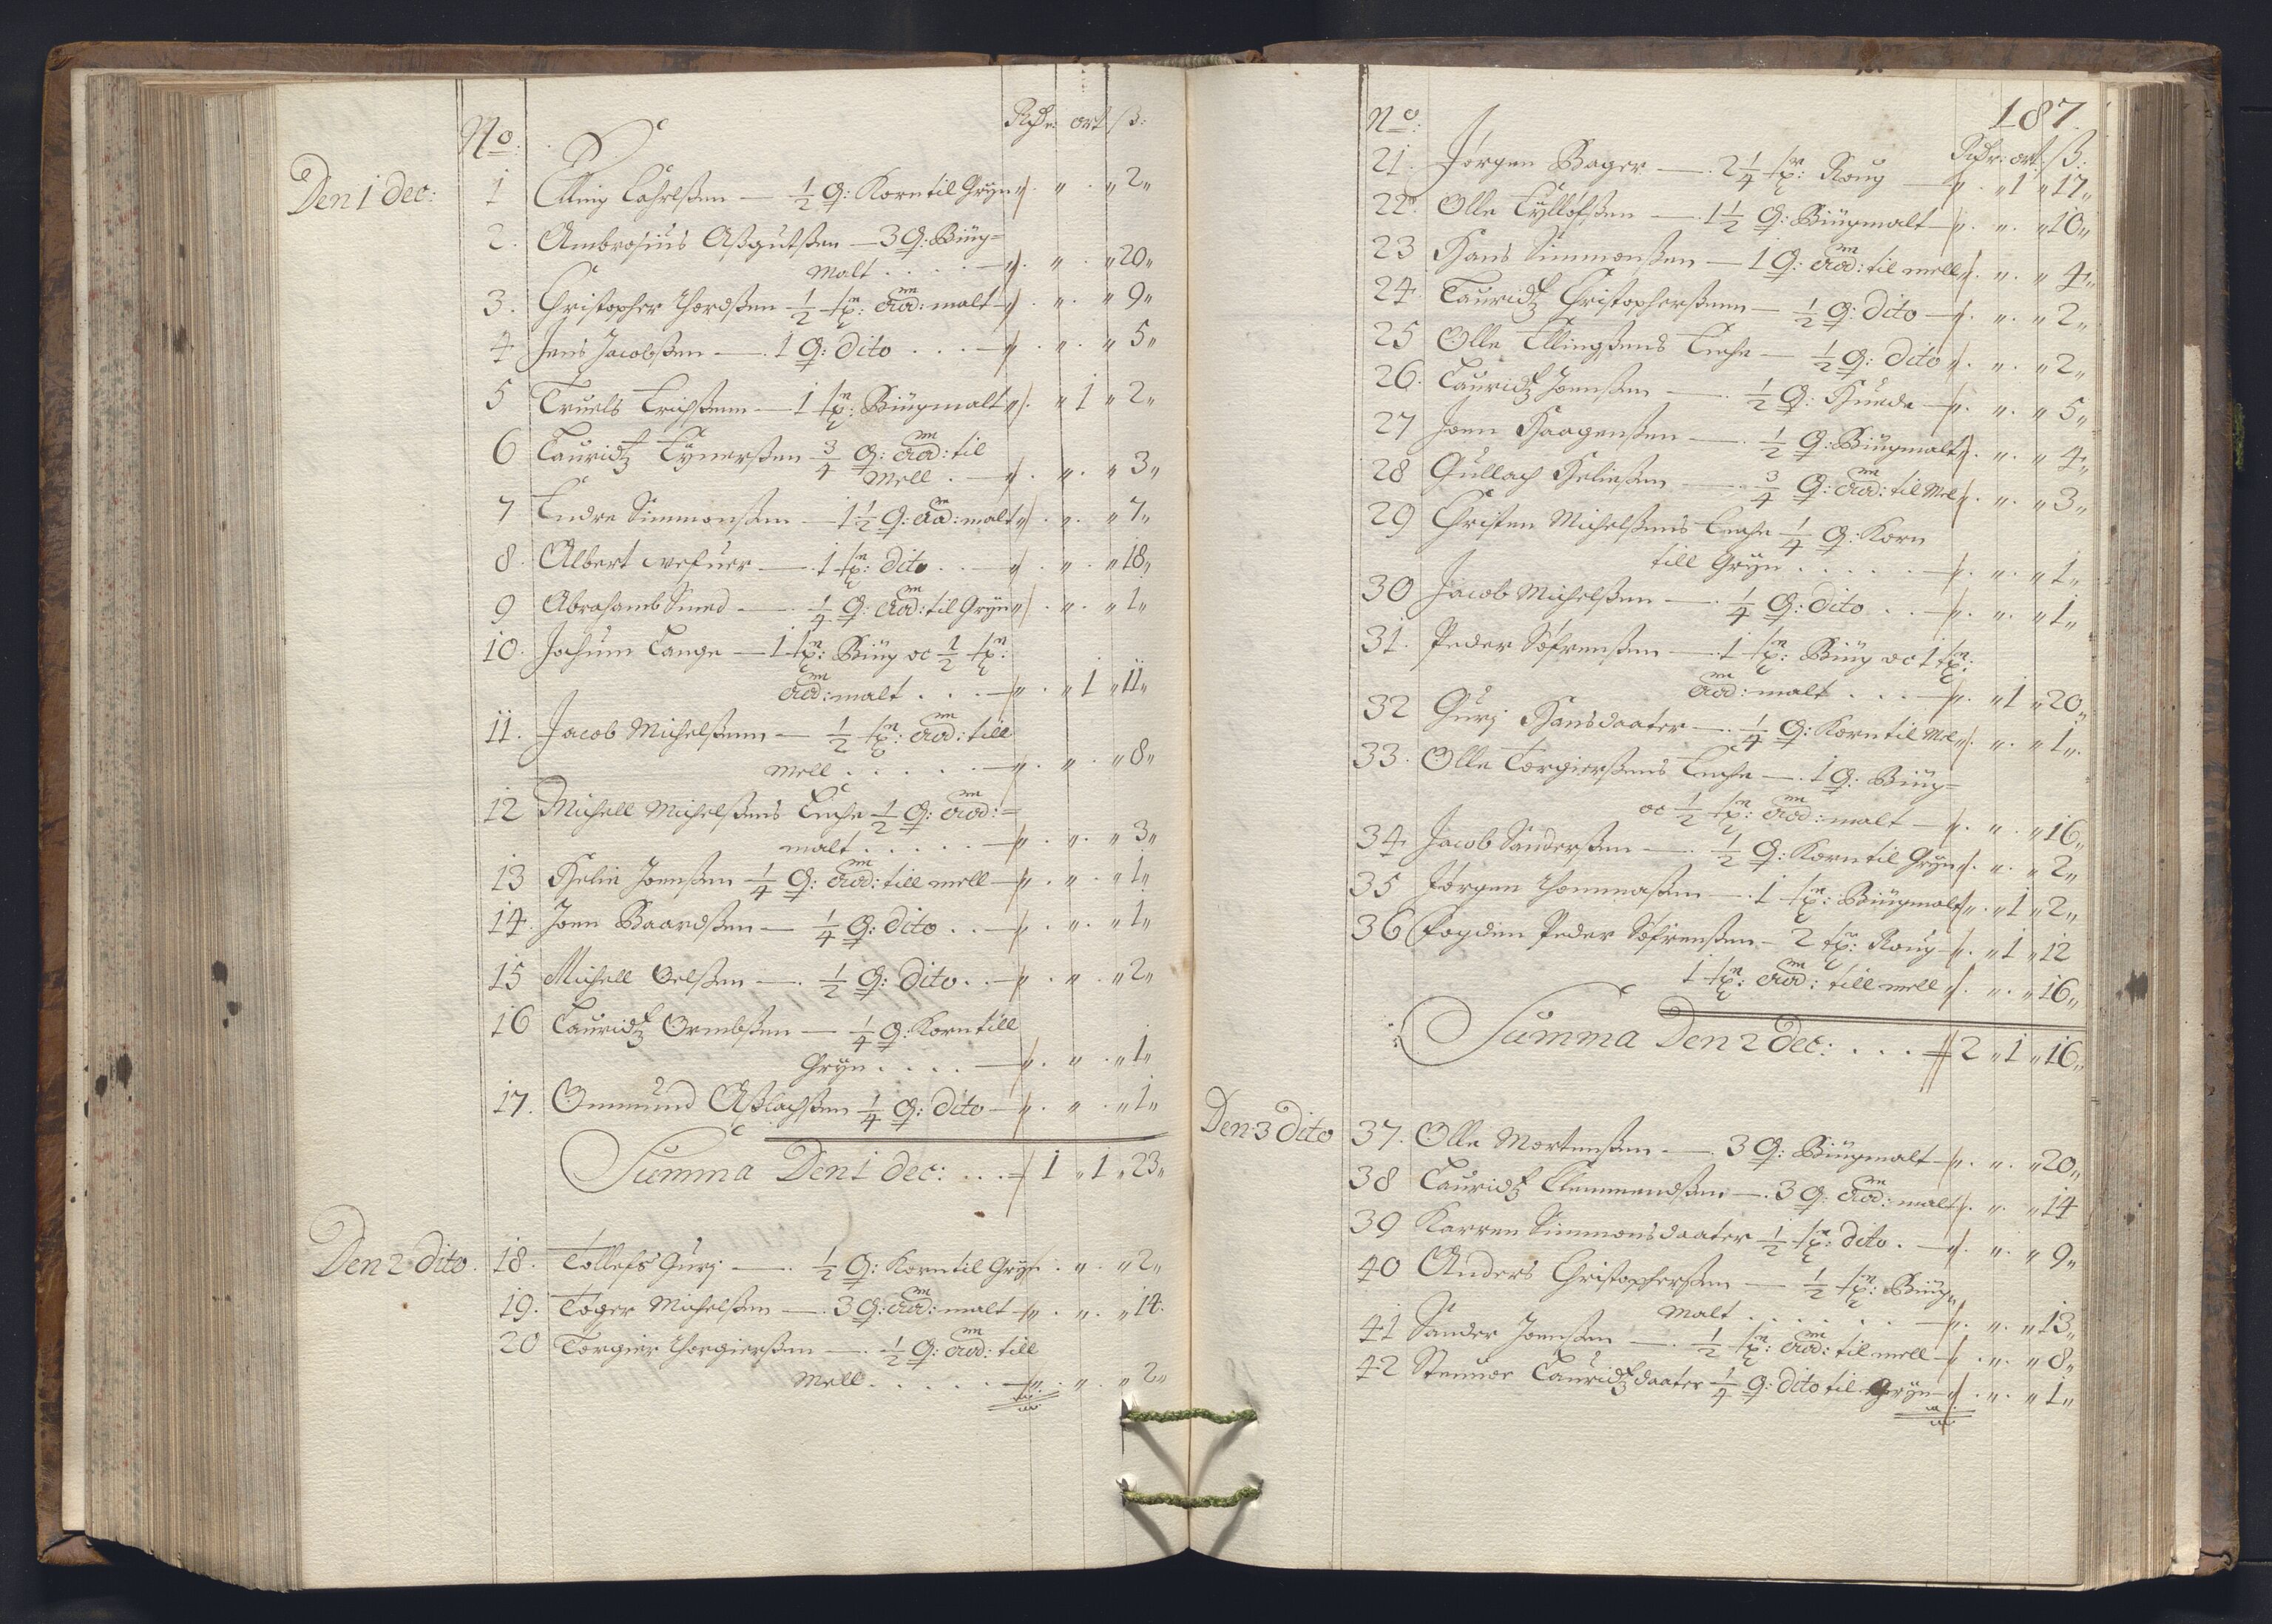 No: Rixdr: ort ß:
Den 1 dec: 1 Elling Carlsßen — ½ Q: Korn til Gryn „ „ 2„
2. Ambrosius Aßgutßen — 3 Q: Biüg=
malt . . . . „ „ 20„
3. Christopher Thordßen ½ tø: aad: malt „ „ 9„
4 Jens Jacobßen — 1 Q: dito . . . „ „ 5„
5 Truels Erichßenn — 1 tø: Biügmalt „ 1 „ 2„
6 Lauridtz Eynerßen ¾ Q: aad: til
Mell . „ „ 3„
7 Endre Simmonßen — 1½ Q: aad: malt „ „ 7„
8. Albert — 1 tø: dito . . „ „ 18„
9 Abrahamb Smed — ¼ Q: aad: til Gryn „ „ 1„
10. Jochum Lange — 1 tø: Biüg oc ½ tø:
aad: malt . . . „ 1 „ 11„
11. Jacob Michelßenn — ½ tø: aad: till
Mell . . . . . „ „ 8„
12 Michell Michelßens Enche ½ Q: aad:=
malt . . . . . „ „ 3„
13 Helie Joenßen ¼ Q: aad: till mell „ „ 1„
14. Joen Baardßen — ¼ Q: dito . . „ „ 1„
15 Michell Oelßen — ½ Q: dito . . „ „ 2„
16 Lauridtz Ormbßen — ¼ Q: Korn till
Gryn . . . . „ „ 1„
17. Ommund Aßlachßen ¼ Q: dito — „ „ 1„
Summa Den 1 dec: . . . 1 „ 1 „ 23„
Den 2 dito. 18. Tollefs Gurj — ½ Q: Korn til Gryn „ „ 2„
19. Toger Michelßen — 3 Q: aad: malt „ „ 14.
20 Torgier Thorgierßen — ½ Q: aad: till
Mell . . . . . „ „ 2„
187.
No: Rixdr: ort: ß:
21. Jørgen Bager — 2¼ tø: Roug — „ 1 „ 17„
22. Olle Eyllofßen — 1½ Q: Biügmalt „ „ 10„
23 Hans Simmonßen — 1 Q: aad: til mell „ „ 4„
24. Lauridtz Christopherßenn — ½ Q: dito „ „ 2„
25 Olle Ellingßens Enche — ½ Q: dito „ „ 2„
26. Lauridtz Joenßen — ½ Q: Huede „ „ 5„
27 Joen Haagenßen — ½ Q: Biügmalt „ „ 4„
28 Gullach Heließen — ¾ Q: aad: til Mel „ „ 3„
29 Christen Michelßens Enche ¼ Q: Korn
till Gryn . . . . . „ „ 1„
30 Jacob Michelßen — ¼ Q: dito . . „ „ 1„
31. Peder Søfrenßen — 1 tø: Biüg oc 1 tø:
aad: malt . . . „ 1 „ 20„
32 Gurj Hansdaater — ¼ Q: Korn til Mel „ „ 1„
33. Olle Torgierßens Enche — 1 Q: Biüg=
oc ½ tø: aad: malt — „ „ 16„
34. Jacob Sanderßen — ½ Q: Korn til Gryn „ „ 2„
35 Jørgen Thommaßen — 1 tø: Biügmalt „ 1 „ 2„
36 Fogden Peder Søfrenßen — 2 tø: Roug „ 1 „ 12
1 tø: aad: till mell „ „ 16„
Summa Den 2 Dec: . . . 2 „ 1 „ 16„
Den 3 dito 37. Olle Mortenßen — 3 Q: Biügmalt „ „ 20„
38 Lauridtz Clemmendßen — 3 Q: aad: malt „ „ 14
39 Karren Simmonsdaater ½ tø: dito . „ „ 9„
40 Anders Christopherßen — ½ tø: Biüg=
Malt . . . . . . „ „ 13„
41 Sander Joenßen — ½ tø: aad: til mell „ „ 8„
42 Stenuor Lauridtzdaater ¼ Q: dito til Gryn „ „ 1„